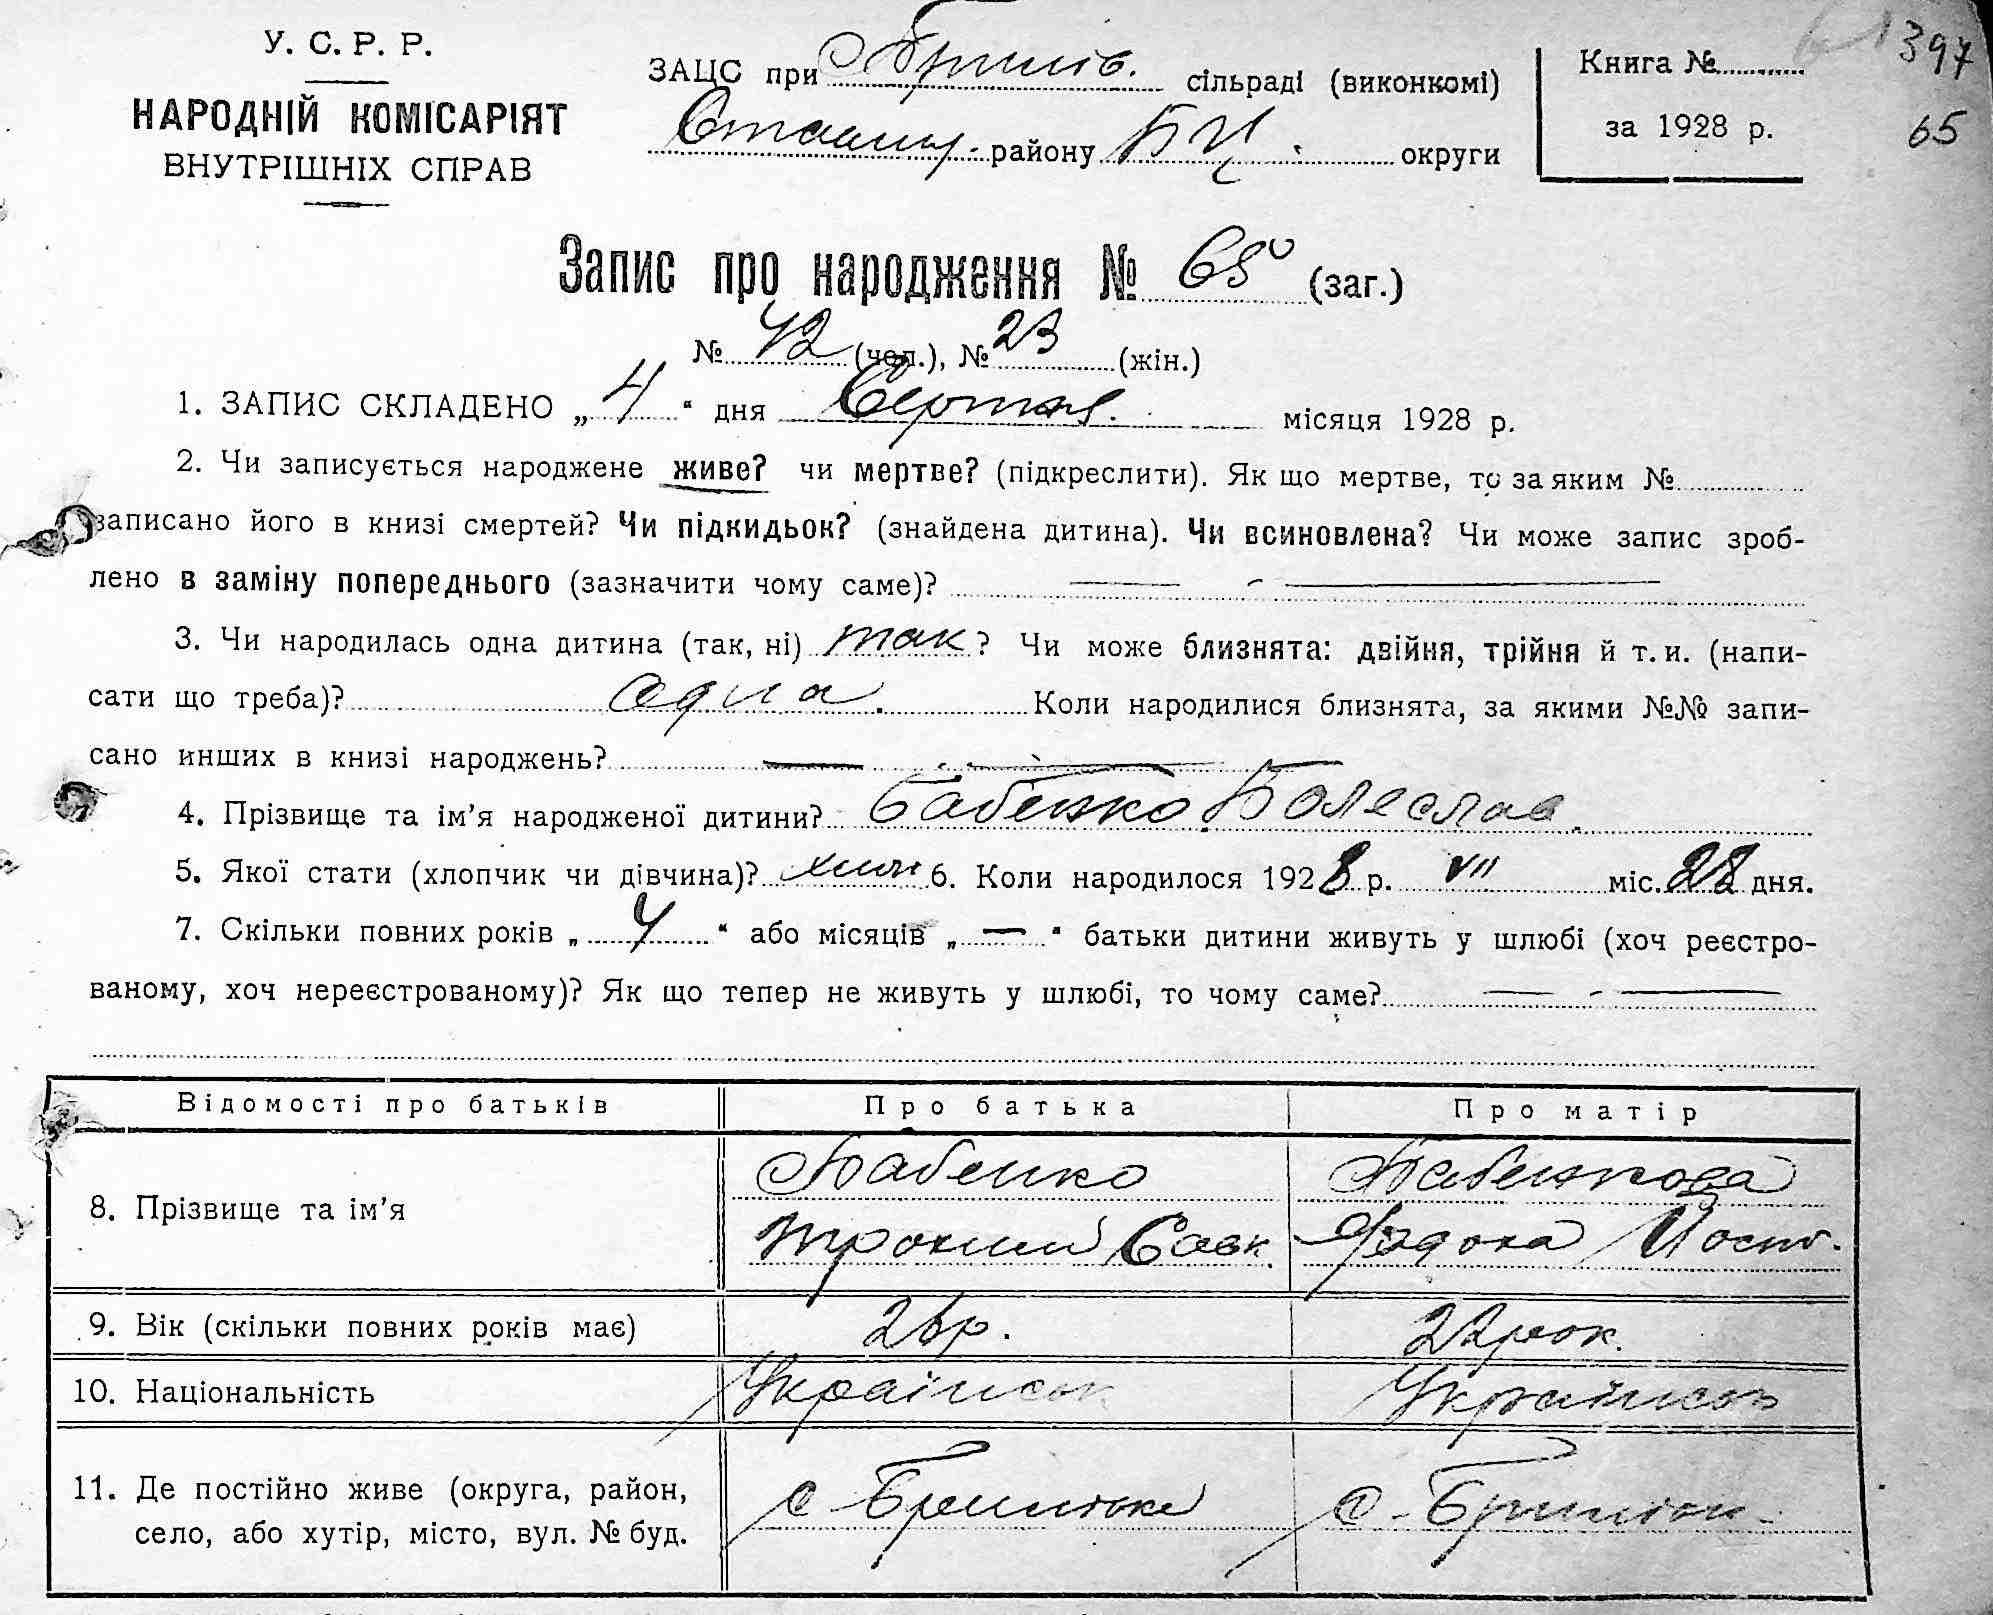 У. С. Р. Р.
НАРОДНІЙ КОМІСАРІЯТ
ВНУТРІШНІХ СПРАВ
ЗАЦС при сільраді (виконкомі)
району БЦ. округи
Книга №
за 1928 р.
397
65
Запис про народження № 65 (заг.)
№ 42 (чол.), № 23 (жін.)
1. ЗАПИС СКЛАДЕНО „ 4 “ дня Серпня. місяця 1928 р.
2. Чи записується народжене живе? чи мертве? (підкреслити). Як що мертве, то за яким №
записано його в книзі смертей? Чи підкидьок? (знайдена дитина). Чи всиновлена? Чи може запис зроб-
лено в заміну попереднього (зазначити чому саме)?
3. Чи народилась одна дитина (так, ні) так ? Чи може близнята: двійня, трійня й т. и. (напи-
сати що треба)? одна. Коли народилися близнята, за якими №№ запи-
сано инших в книзі народжень?
4. Прізвище та ім’я народженої дитини? Бабенко Болеслав.
5. Якої стати (хлопчик чи дівчина)? хлоп 6. Коли народилося 1928 р. VII міс. 28 дня.
7. Скільки повних років „ 4 “ або місяців „ — “ батьки дитини живуть у шлюбі (хоч реєстро-
ваному, хоч нереєстрованому)? Як що тепер не живуть у шлюбі, то чому саме?
Відомості про батьків Про батька Про матір
8. Прізвище та ім’я
Бабенко Бабенкова
Трохим Савк. Йосип.
9. Вік (скільки повних років має) 26р. 22 рок.
10. Національність Українськ Українськ
11. Де постійно живе (округа, район,
село, або хутір, місто, вул. № буд.
с.
с.